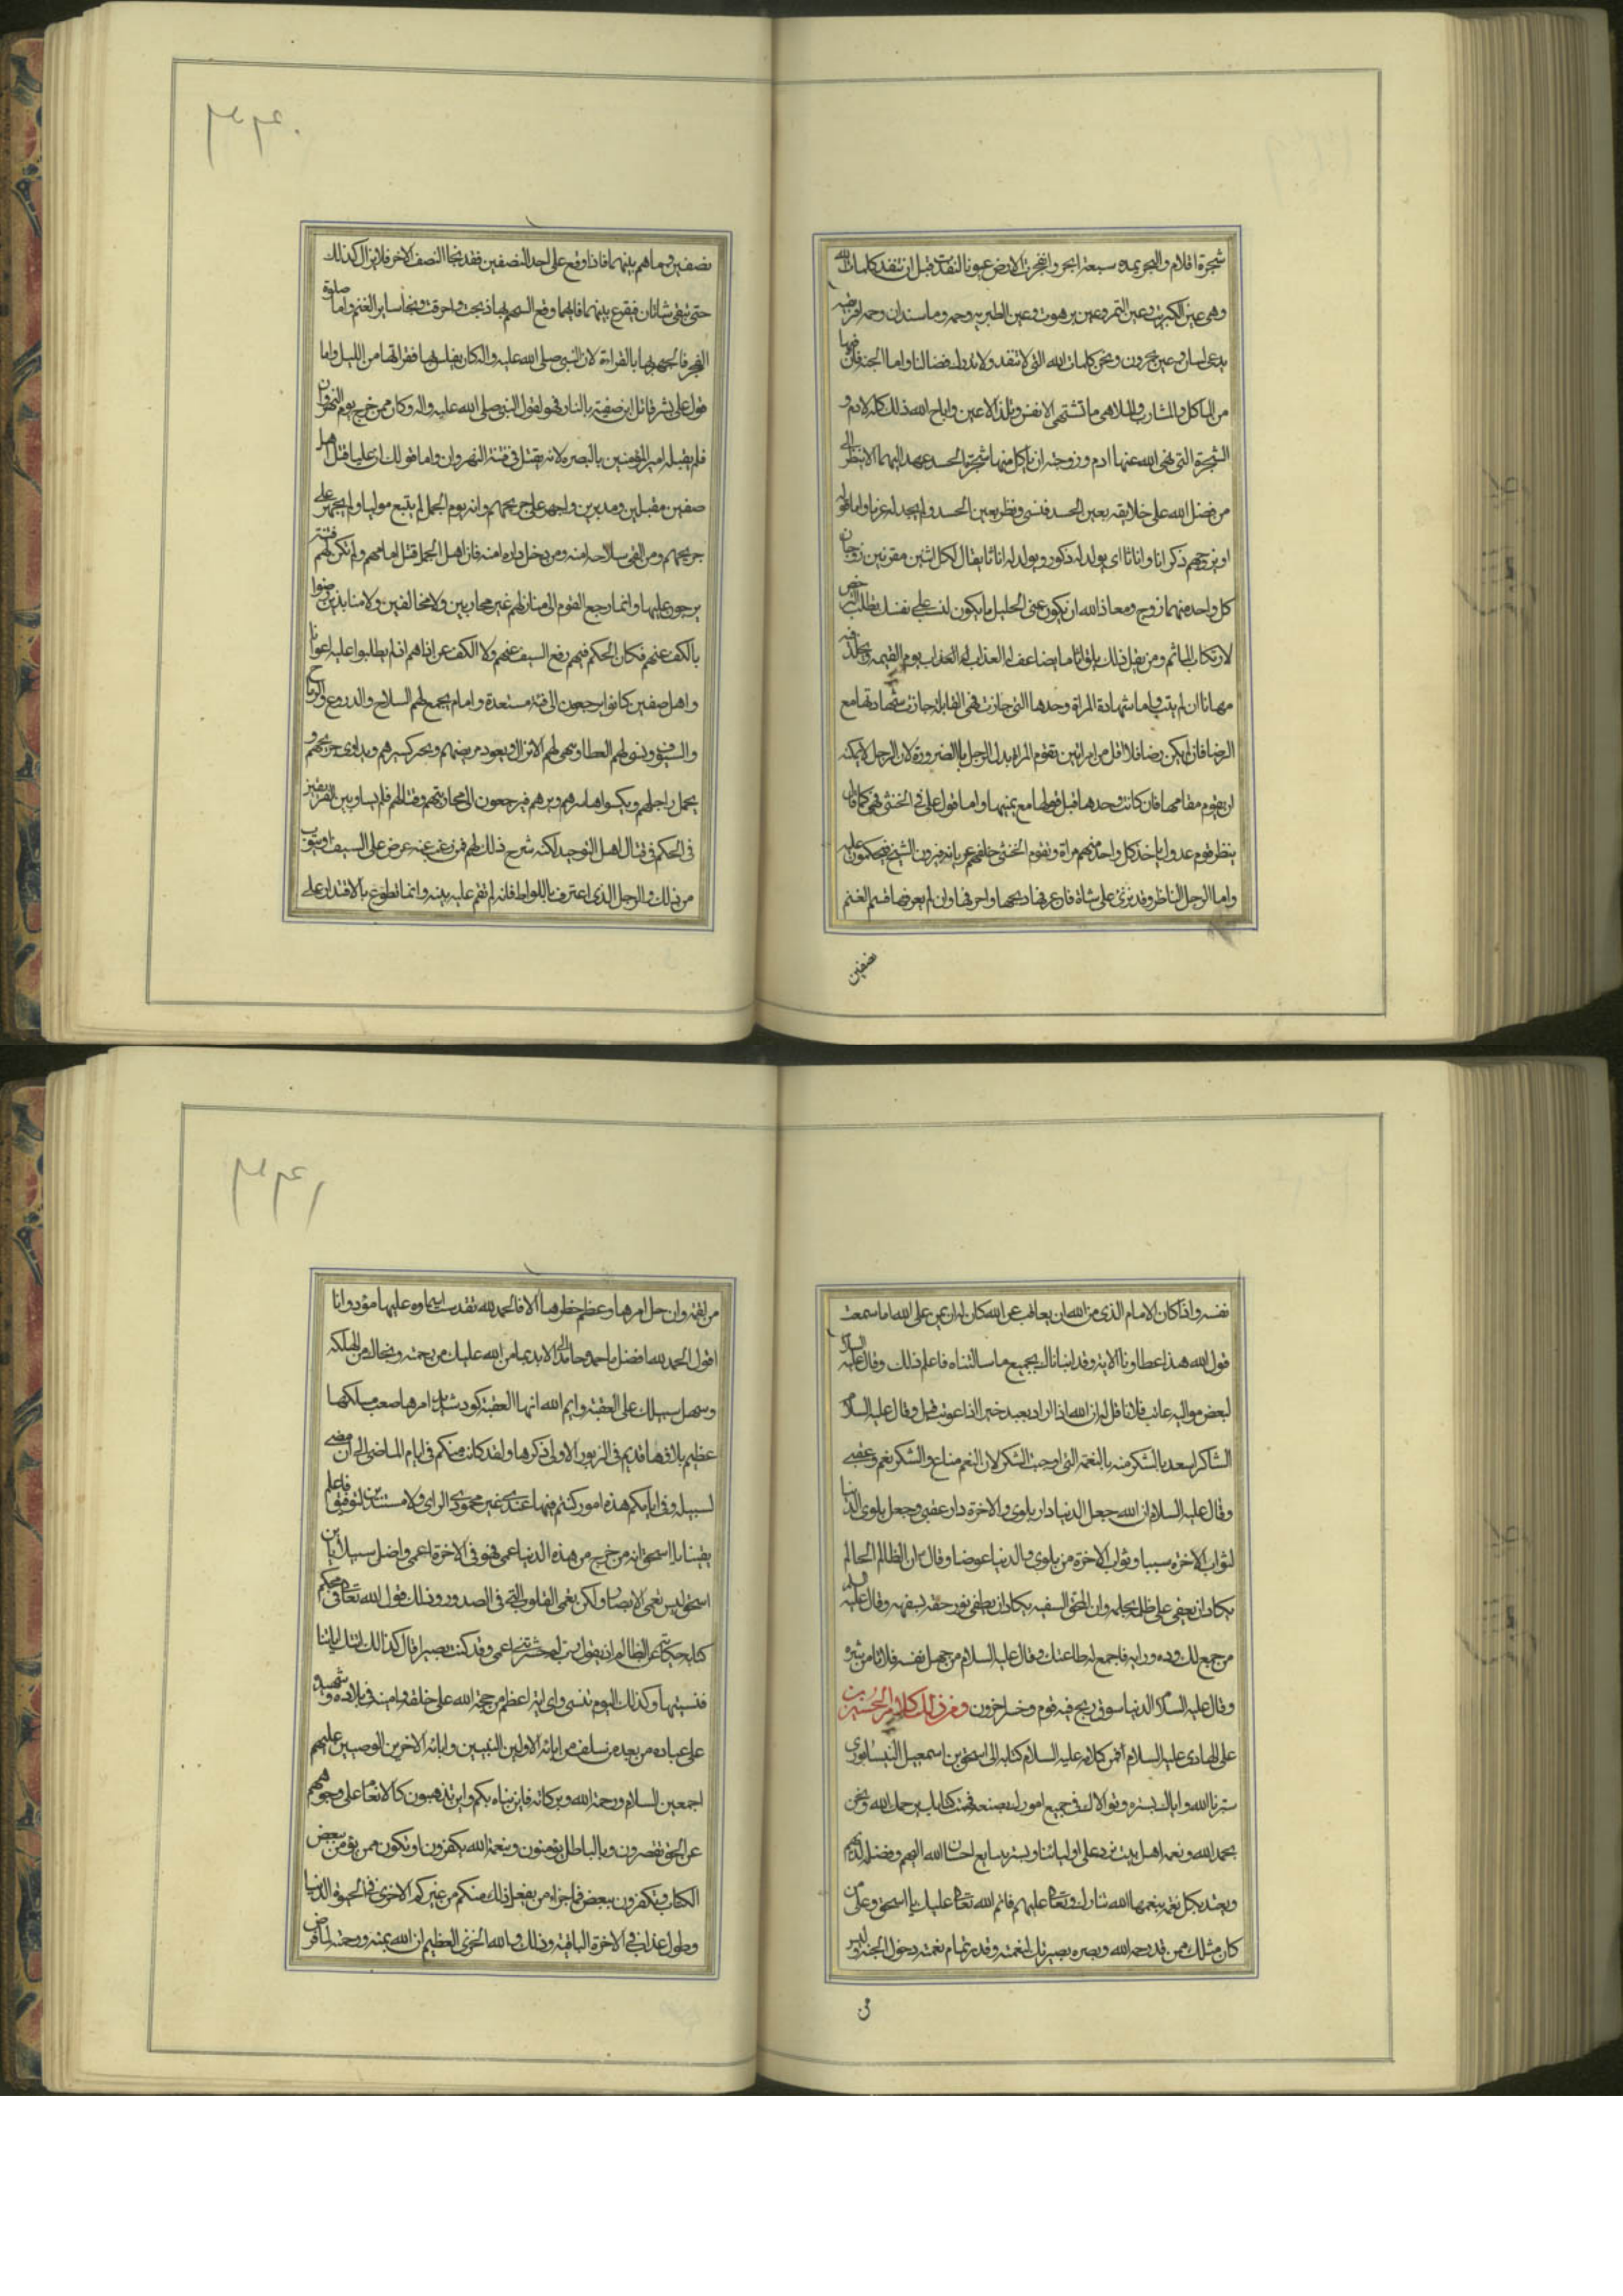 شجرة اقلام والبحر يمده سبعة ابحر وانفجرت الارض عيونا لنفدت قبل ان تنفد كلمات الله
وهي عين الكبريت وعين التمر وعين برهوت وعين الطبريه وحمه وماسبندان وحمه افريقيه
يدعى لسان وعين بحرون ونحن كلمات الله التي لا تنفد ولا تدرك فضائلنا واما الجنة فان فيها
من الماكل والمشارب والملاهي ما تشتهي الانفس وتلذ الاعين واباح الله ذلك كله لادم و
الشجرة التي نهى الله عنها ادم وزوجته ان ياكل منها شجرة الحسد عهد اليهما الا ينظر الى
من فضل الله على خلايقه بعين الحسد فنسى ونظر بعين الحسد ولم يجد له عزما واما قوله
او يزوجهم ذكرانا واناثا اى يولد له ذكور ويولد له اناث يقال لكل اثنين مقرنين زوجان
كل واحد منهما زوج ومعاذ الله ان يكون عنى الجليل ما لبست على نفسك تطلب الرخص
لارتكاب الماثم ومن يفعل ذلك يلق اثاما يضاعف له العذاب يوم القيمة ويخلد فيه
مهانا ان لم يتب واما شهادة المراة وحدها التي جازت فهي القابلة جازت شهادتها مع
الرضا فان لم يكن رضا فلا اقل من امراتين تقوم المراة بدل الرجل بالضرورة لان الرجل لا يمكنه
ان يقوم مقامها فان كانت وحدها قبل قولها مع يمينها واما قول علي في الخنثى فهي كما قال
ينظر قوم عدول ياخذ كل واحد منهم مراة وتقوم الخنثى خلفهم عريانة فيرون الشبح فيحكمون عليه
واما الرجل الناظر وقد نزى على شاة فان عرفها ذبحها واحرقها وان لم يعرفها قسم الغنم
نصفين
۳۴۰
نصفين وساهم بينهما فاذا وقع على احد النصفين فقد نجا النصف الاخر فلا يزال كذلك
حتى تبقى شاتان فيقرع بينهما فايهما وقع السهم بها ذبحت واحرقت ونجا ساير الغنم واما صلوة
الفجر فالجهر بها بالقراءة لان النبي صلى الله عليه واله كان يغلس بها فقراتها من الليل واما
قول علي بشر قاتل ابن صفية بالنار فهو لقول النبي صلى الله عليه واله وكان ممن خرج يوم النهروان
فلم يقتله امير المؤمنين بالبصره لانه يقتل في فتنة النهروان واما قولك ان عليا قتل اهل
صفين مقبلين ومدبرين واجهز على جريحهم وانه يوم الجمل لم يتبع موليا ولم يجهز على
جريحهم ومن القى سلاحه امنه ومن دخل داره امنه فان اهل الجمل قتل امامهم ولم تكن لهم فئة
يرجعون عليها وانما رجع القوم الى منازلهم غير محاربين ولا مخالفين ولا منابذين رضوا
بالكف عنهم فكان الحكم فيهم رفع السيف عنهم ولا الكف عن اذاهم اذ لم يطلبوا عليه اعوانا
واهل صفين كانوا يرجعون الى فئة مستعدة وامام يجمع لهم السلاح والدروع والرماح
والسيوف ويسنى لهم العطا ويهى لهم الانزال ويعود مريضهم ويجبر كسيرهم ويداوى جريحهم و
يحمل راجلهم ويكسوا حاسرهم ويردهم فيرجعون الى محاربتهم وقتالهم فلم يساو بين الفريقين
في الحكم في قتال اهل التوحيد لكنه شرح ذلك لهم فمن رغب عنه عرض على السيف او يتوب
من ذلك والرجل الذى اعترف باللواط فانه لم تقم عليه بينه وانما تطوع بالاقتدار على
نفسه واذا كان الامام الذى من الله ان يعاقب عن الله كان له ان يمن على الله اما سمعت
قول الله هذا عطاونا الاية وقد انبانا لك بجميع ما سالتناه فاعلم ذلك وقال عليه السلام
لبعض مواليه عاتب فلانا قل له ان الله اذا اراد بعبد خيرا اذا عوتب قبل وقال عليه السلام
الشاكر اسعد بالشكر منه بالنعمة التي اوجبت الشكر لان النعم متاع والشكر نعم وعقبى
وقال عليه السلام ان الله جعل الدنيا دار بلوى والاخرة دار عقبى وجعل بلوى الدنيا
لثواب الاخره سببا وثواب الاخرة من بلوى الدنيا عوضا وقال ان الظالم الحالم
يكاد ان يعفى على ظلمه بحلمه وان المحق السفيه يكاد ان يطفى نور حقه بسفهه وقال عليه السلام
من جمع لك وده ورايه فاجمع له طاعتك وقال عليه السلام من جهل نفسه فلا تامن شره
وقال عليه السلام الدنيا سوق ربح فيه قوم وخسر اخرون ومن ذلك كلام الحسن بن
علي الهادي عليه السلام فمن كلامه عليه السلام كتابه الى اسحق بن اسمعيل النيسابورى
سترنا الله واياك بستره وتولاك في جميع امورك بصنعه فهمت كتابك يرحمك الله ونحن
بحمد الله ونعمه اهل بيت نرد على اوليائنا ونسر بتتابع احسان الله اليهم وفضله لديهم
ونعتد بكل نعمة ينعمها الله تبارك وتعالى عليهم فاتم الله تعالى عليك يا اسحق وعلى من
كان مثلك ممن قد رحمه الله وبصره بصيرتك نعمته وقدر تمام نعمته دخول الجنه وليس
من
۳۴۱
من نعمة وان جل امرها وعظم خطرها الا فالحمد لله تقدست اسماوه عليها مؤد وانا
اقول الحمد لله افضل ما حمده حامد الى الابد بما من الله عليك من رحمته ونجاك من الهلكه
وسهل سبيلك على العقبة وايم الله انها العقبة كود شديد امرها صعب مسلكها
عظيم بلاوها قديم في الزبور الاولى ذكرها ولقد كانت منكم في ايام الماضى الى ان مضى
لسبيله وفي ايامكم هذه امور كنتم فيها عندى غير محمودى الراى ولا مستندين لتوفيق فاعلم
يقينا يا اسحق انه من خرج من هذه الدنيا اعمى فهو في الاخرة اعمى واضل سبيلا يابن
اسحق ليس تعمى الابصار ولكن تعمى القلوب التي في الصدور وذلك قول الله تعالى في محكم
كتابه حكاية عن الظالم اذ يقول رب لم حشرتني اعمى وقد كنت بصيرا قال كذلك اتتك اياتنا
فنسيتها وكذلك اليوم تنسى واى اية اعظم من حجة الله على خلقه وامينه في بلاده وشهيده
على عباده من بعد من سلف من ابائه الاولين النبيين وابائه الاخرين الوصيين عليهم
اجمعين السلام ورحمة الله وبركاته فاين يتاه بكم واين تذهبون كالانعام على وجوهكم
عن الحق تصرفون وبالباطل يؤمنون وبنعمة الله يكفرون او تكون ممن يؤمن ببعض
الكتاب وتكفرون ببعض فما جزاء من يفعل ذلك منكم من غيركم الا خزى في الحيوة الدنيا
وطول عذاب في الاخرة الباقية وذلك والله الخزى العظيم ان الله بمنه ورحمته لما فرض